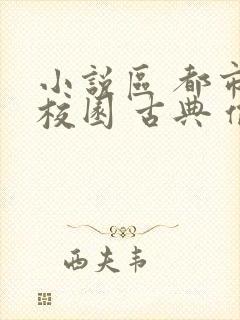 小說區 都市
校園 古典
西夫韦